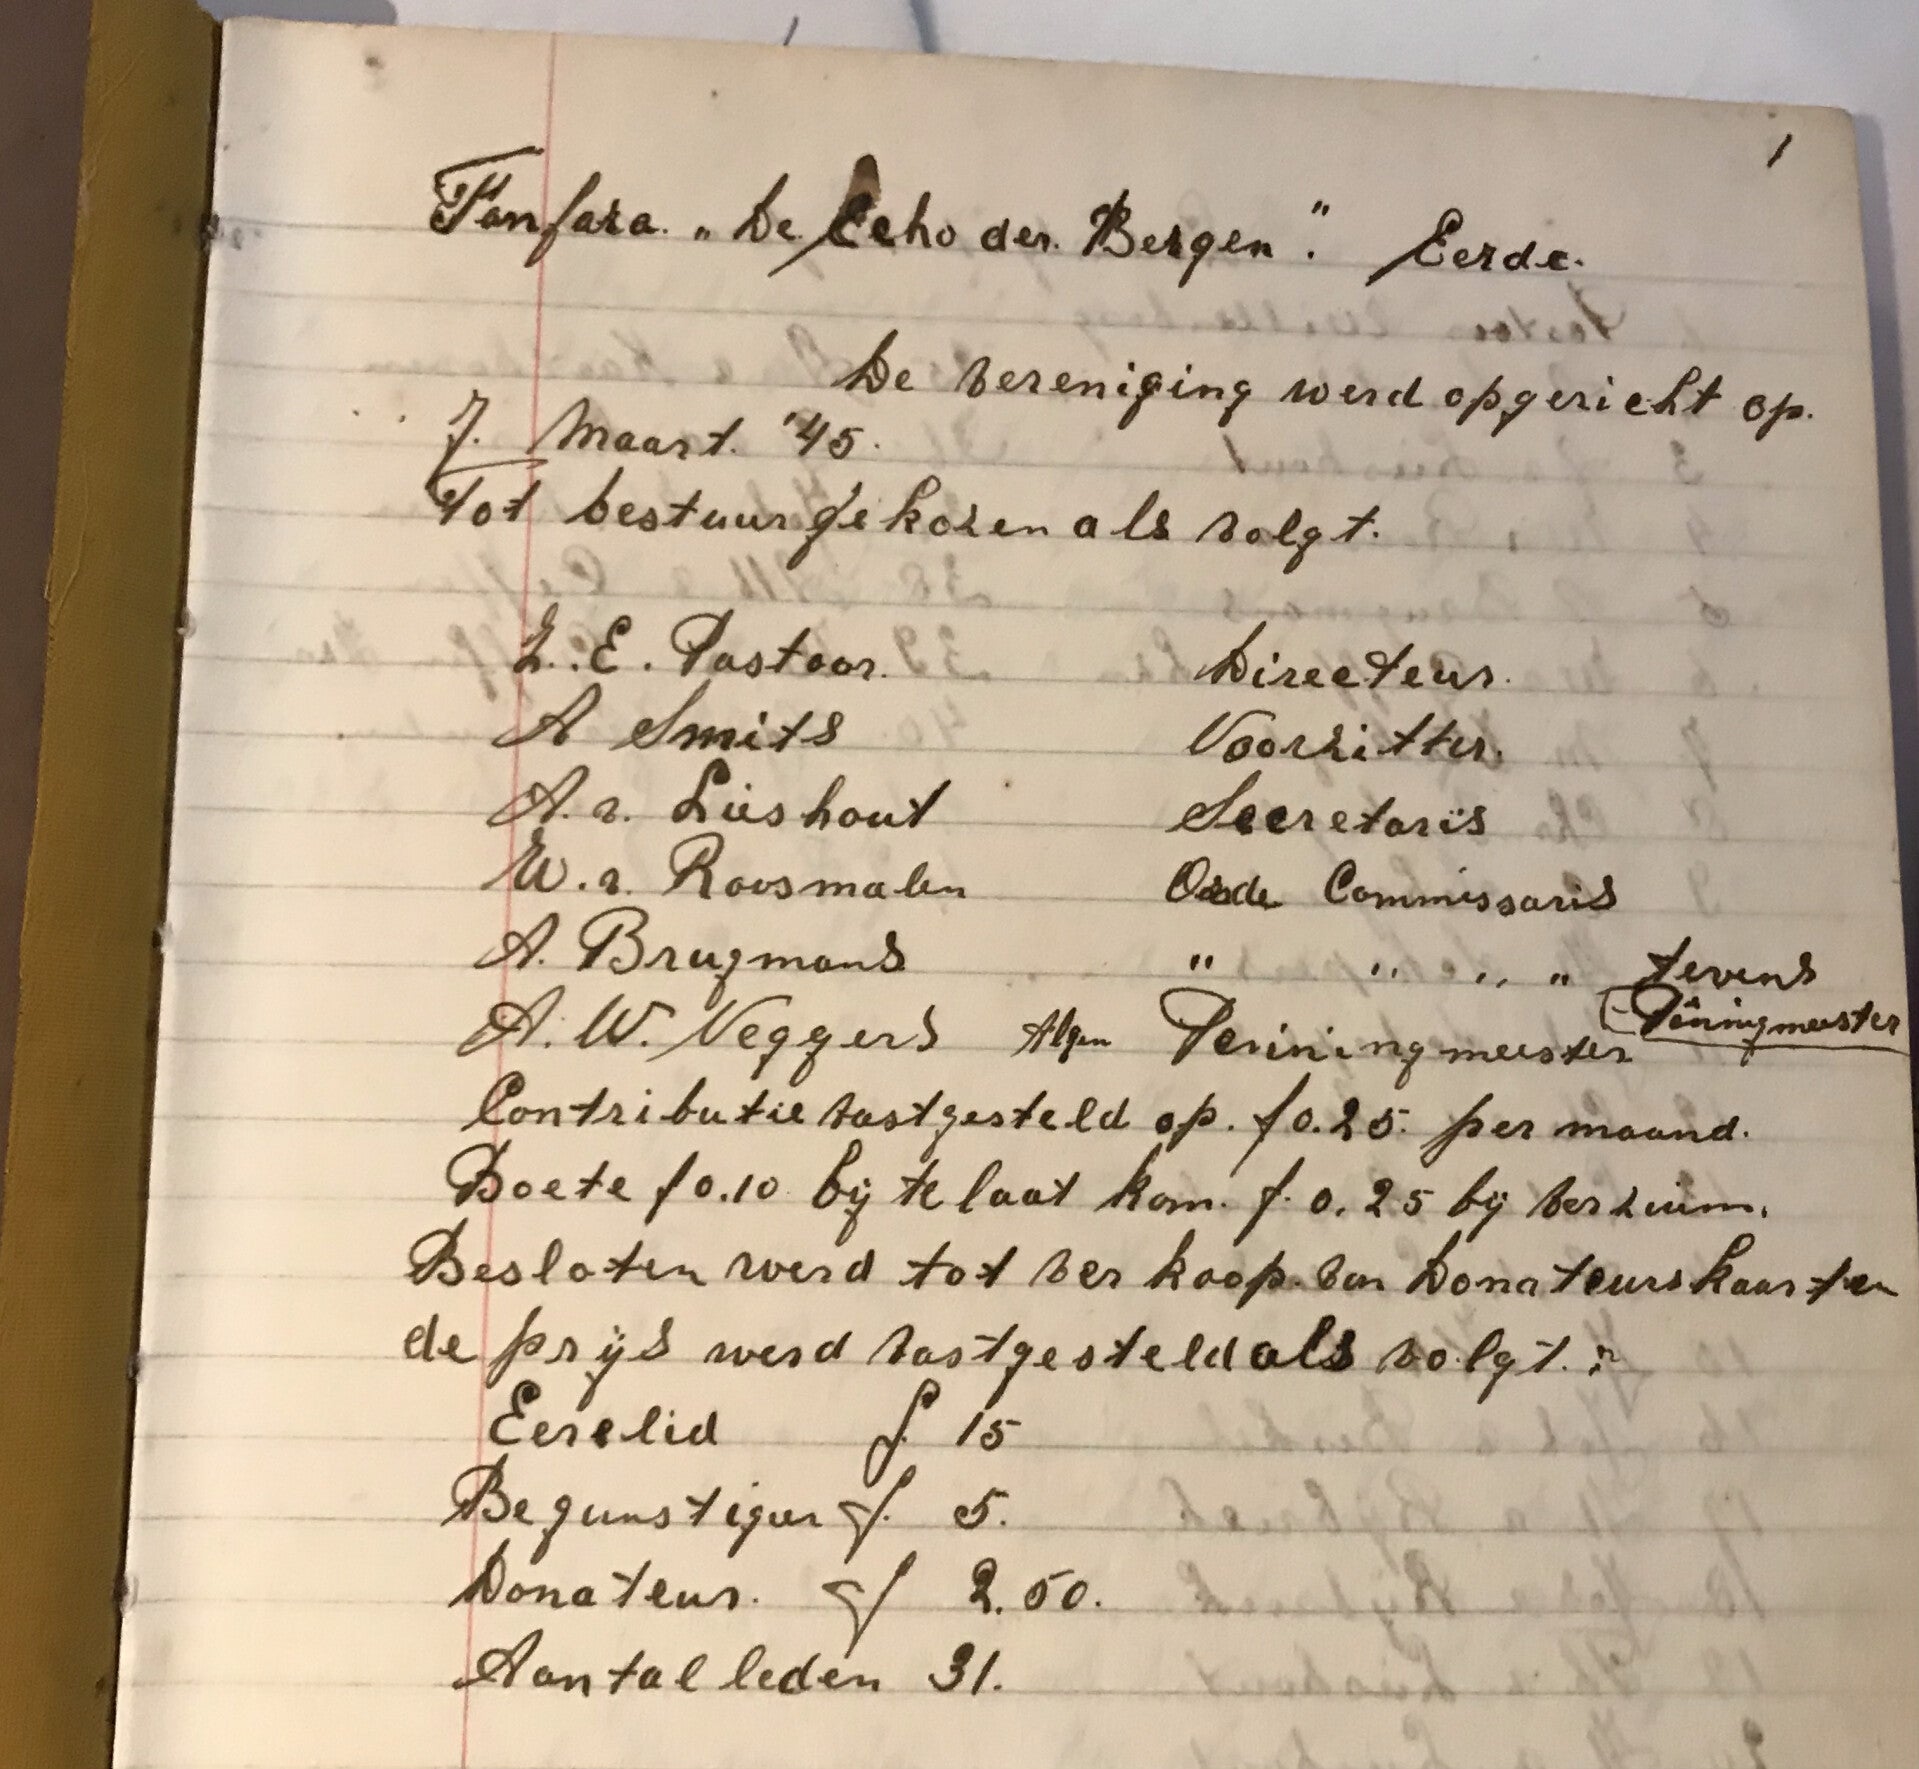 1
Fanfara. „De Echo der. Bergen". Eerde.
De vereniging werd opgericht op.
7. Maart. '45.
Tot bestuur gekozen als volgt.
Z.. E. Pastoor. Directeur.
A Smits Voorzitter.
A. v. Lieshout Secretaris
W. v. Roosmalen Orde Commissaris
A. Brugmans " " " " tevens
Penningmeester
A. W. Veggers Algem Penningmeester
Contributie vastgesteld op. f 0.25. per maand.
Boete f 0.10 bij te laat kom. f. 0.25 bij verzuim.
Besloten werd tot verkoop van Donateurskaarten
de prijs werd vastgesteld als volgt. :
Eerelid f. 15
Begunstiger f. 5.
Donateur. f 2.50.
Aantal leden 31.